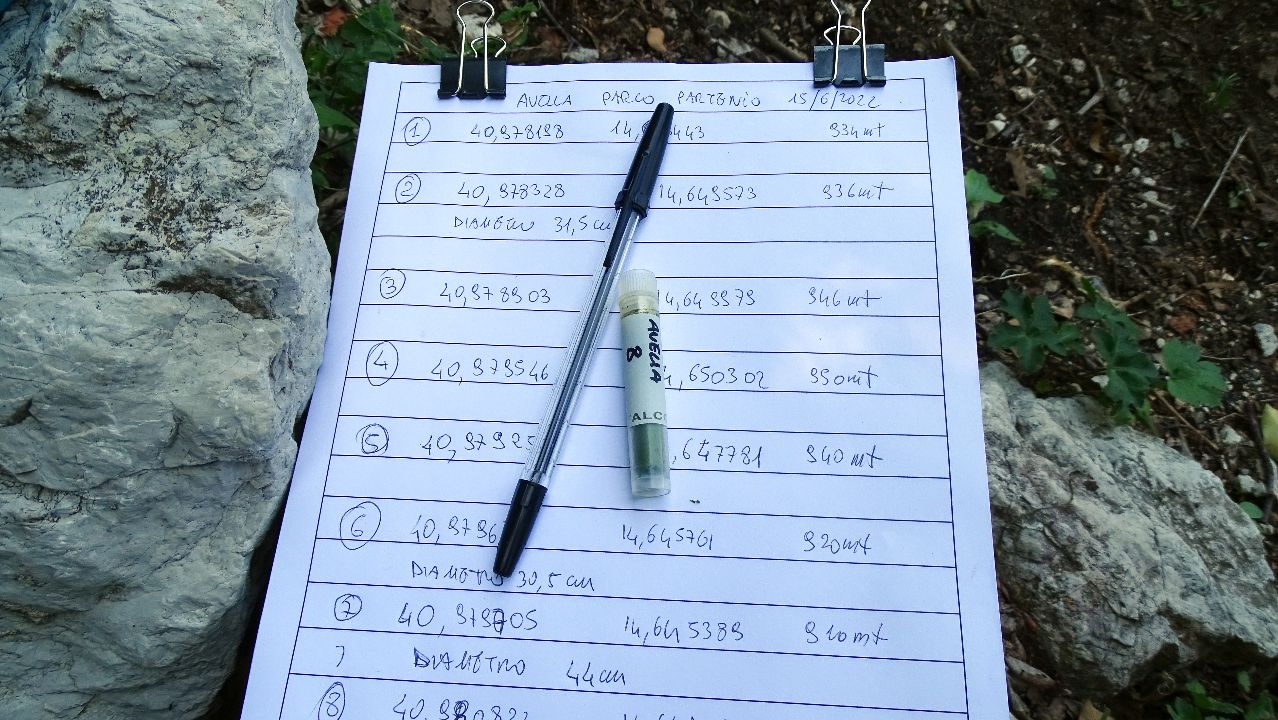 AVELLA PARCO PARTENIO 15/6/2022
1 40,978198 934mt
2 40,978328 14,649573 936mt
DIAMETRO 31,5cm
3 40,978903 14,649979 946mt
4 40,979546 ,650302 950mt
5 40,97925 ,647781 940mt
6 40,9796 14,645761 920mt
DIAMETRO 30,5cm
7 40,979705 14,645389 910mt
DIAMETRO 44cm
8
AVELLA
8
ALC